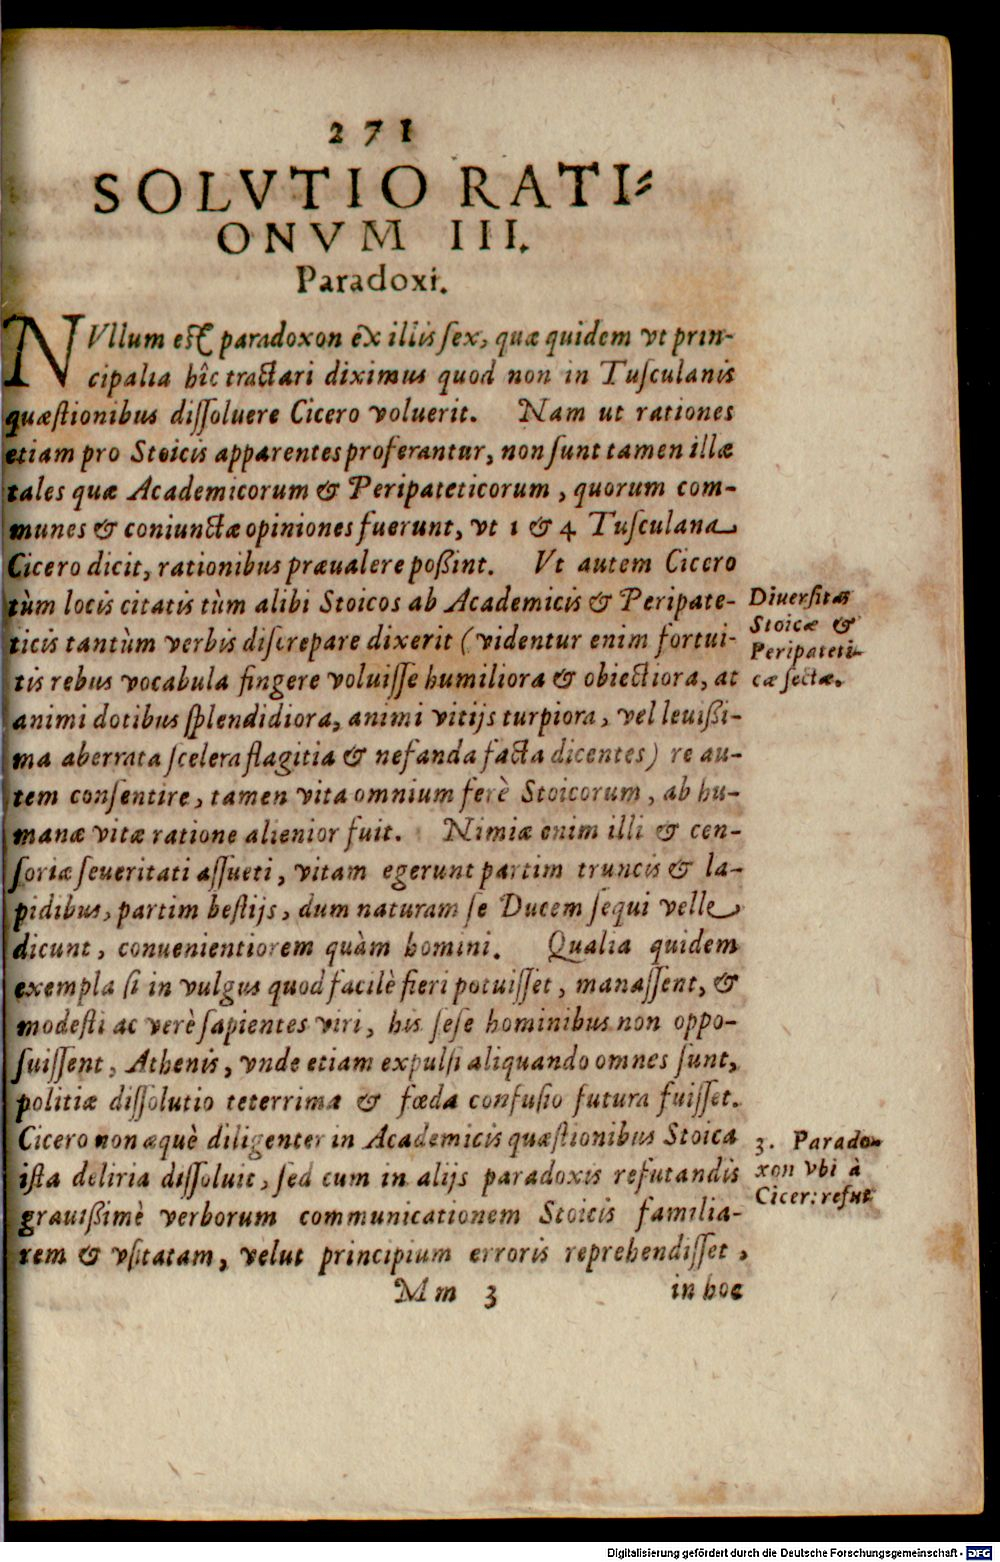 271
SOLVTIO RATI-
ONVM III.
Paradoxi.
NVllum est paradoxon ex illis sex, quæ quidem vt prin-
cipalia hîc tractari diximus quod non in Tusculanis
quæstionibus dissoluere Cicero voluerit. Nam ut rationes
etiam pro Stoicis apparentes proferantur, non sunt tamen illæ
tales quæ Academicorum & Peripateticorum, quorum com-
munes & coniunctæ opiniones fuerunt, vt 1 & 4 Tusculana
Cicero dicit, rationibus præualere poßint. Vt autem Cicero
tùm locis citatis tùm alibi Stoicos ab Academicis & Peripate-
ticis tantùm verbis discrepare dixerit (videntur enim fortui-
tis rebus vocabula fingere voluisse humiliora & obiectiora, at
animi dotibus splendidiora, animi vitijs turpiora, vel leuißi-
ma aberrata scelera flagitia & nefanda facta dicentes) re au-
tem consentire, tamen vita omnium ferè Stoicorum, ab hu-
manæ vitæ ratione alienior fuit. Nimiæ enim illi & cen-
soriæ seueritati assueti, vitam egerunt partim truncis & la-
pidibus, partim bestijs, dum naturam se Ducem sequi velle
dicunt, conuenientiorem quàm homini. Qualia quidem
exempla si in vulgus quod facilè fieri potuisset, manassent, &
modesti ac verè sapientes viri, his sese hominibus non oppo-
suissent, Athenis, vnde etiam expulsi aliquando omnes sunt,
politiæ dissolutio teterrima & fœda confusio futura fuisset.
Cicero non æquè diligenter in Academicis quæstionibus Stoica
ista deliria dissoluit, sed cum in alijs paradoxis refutandis
grauißimè verborum communicationem Stoicis familia-
rem & vsitatam, velut principium erroris reprehendisset,
Mm 3 in hoc
Diuersitas
Stoicæ &
Peripateti-
cæ sectæ.
3. Parado-
xon vbi à
Cicer: refut
Digitalisierung gefördert durch die Deutsche Forschungsgemeinschaft - DFG